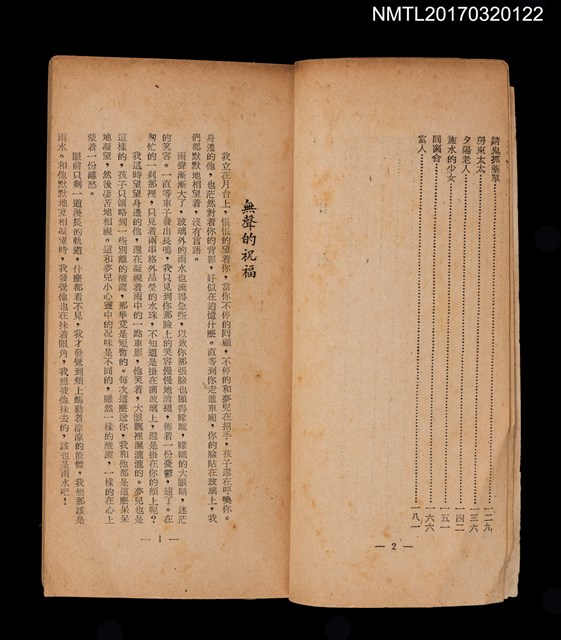 NMTL20170320122
請鬼抓藥單……一二九
房東太太……一三六
夕陽老人……一四二
施水的少女……一五一
同窗會……一六六
富人……一八一
— 2 —
無聲的祝福
我立在月台上，悵悵的望着你，當你不停的回顧，不停的和夢兒在招手，孩子還在呼喚你。
身邊的他，也茫然對着你的背影，好似在追憶什麼。直等到你走進車廂，你的臉貼在玻璃上，我
們都默默地相望着，沒有言語。
雨聲漸漸大了，玻璃外的雨水也流得急些，以致你那張臉也顯得矇矓，矇矓的大眼睛，迷茫
的笑容。一直等車子發出長鳴，我只見到你那臉上的笑容慢慢地消褪，佈着一份憂鬱，遠了。在
匆忙的一刹那裡，只見着兩串格外晶瑩的水珠，不知道是掛在窗玻璃上，還是掛在你的頰上呢？
我這時望望身邊的他，還在凝視着雨中的一點車影，他笑着，大眼眶裡濕漉漉的。夢兒也是
這樣的，孩子只領略到一些別離的酸澀，那畢竟是短暫的。每次這麼送你，我和他都是這麼呆呆
地凝望，然後凄苦地相視。這和夢兒小心靈中的況味是不同的，雖然一樣的酸澀，一樣的在心上
蒙着一份離愁。
眼前只剩一道漫長的軌道，什麼都看不見，我才發覺到頰上蠕動著涼涼的液體，我想那該是
雨水。和他默默地互相凝望時，我發覺他也在抹着眼角，我想被他抹去的，該也是雨水吧！
— 1 —